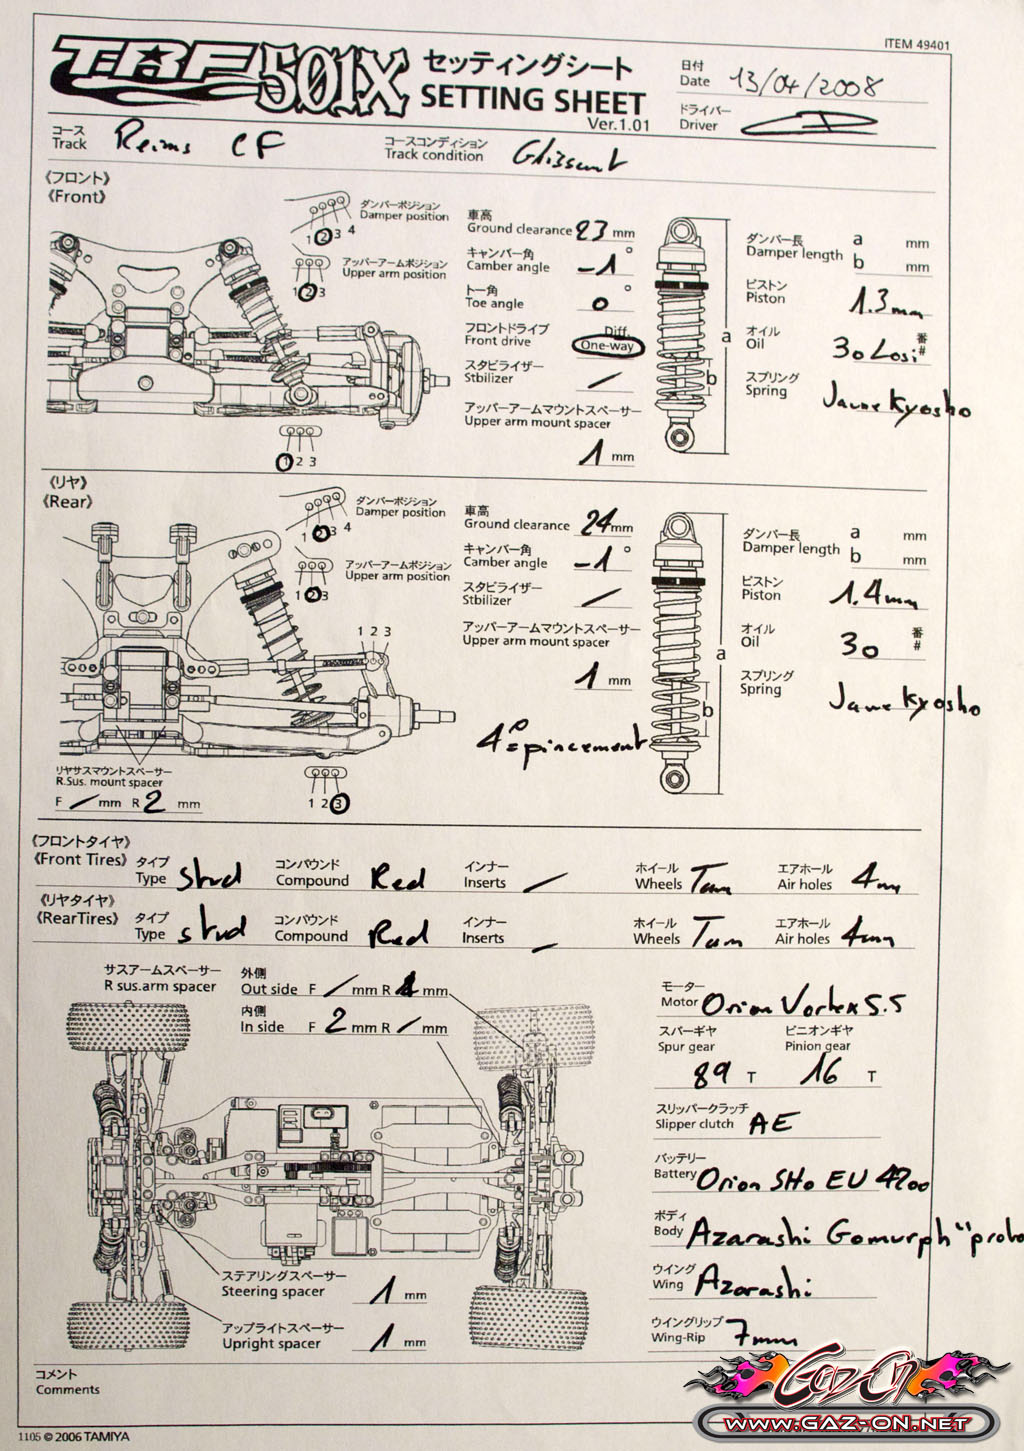 ITEM 49401
TRF 501X セッティングシート
SETTING SHEET
Ver.1.01
日付
Date 13/04/2008
ドライバー
Driver
コース
Track Reims CF
コースコンディション
Track condition Glissant
《フロント》
《Front》
ダンパーポジション
Damper position
1 2 3 4
アッパーアームポジション
Upper arm position
1 2 3
1 2 3
車高
Ground clearance 23 mm
キャンバー角
Camber angle -1 °
トー角
Toe angle 0 °
フロントドライブ
Front drive Diff. One-way
スタビライザー
Stbilizer /
アッパーアームマウントスペーサー
Upper arm mount spacer
1 mm
a
b
ダンパー長
Damper length a mm
b mm
ピストン
Piston 1.3mm
オイル
Oil 30 Losi 番 #
スプリング
Spring Jaune Kyosho
《リヤ》
《Rear》
ダンパーポジション
Damper position
1 2 3 4
アッパーアームポジション
Upper arm position
1 2 3
1 2 3
1 2 3
リヤサスマウントスペーサー
R.Sus. mount spacer
F / mm R 2 mm
車高
Ground clearance 24 mm
キャンバー角
Camber angle -1 °
スタビライザー
Stbilizer /
アッパーアームマウントスペーサー
Upper arm mount spacer
1 mm
4° = pincement
a
b
ダンパー長
Damper length a mm
b mm
ピストン
Piston 1.4mm
オイル
Oil 30 番 #
スプリング
Spring Jaune Kyosho
《フロントタイヤ》
《Front Tires》 タイプ Type Stud コンパウンド Compound Red インナー Inserts / ホイール Wheels Tam エアホール Air holes 4mm
《リヤタイヤ》
《RearTires》 タイプ Type Stud コンパウンド Compound Red インナー Inserts / ホイール Wheels Tam エアホール Air holes 4mm
サスアームスペーサー
R sus.arm spacer
外側
Out side F / mm R 1 mm
内側
In side F 2 mm R / mm
ステアリングスペーサー
Steering spacer 1 mm
アップライトスペーサー
Upright spacer 1 mm
モーター
Motor Orion Vortex 5.5
スパーギヤ ピニオンギヤ
Spur gear Pinion gear
89 T 16 T
スリッパークラッチ
Slipper clutch AE
バッテリー
Battery Orion SHO EU 4200
ボディ
Body Azarashi Gomurph "proto
ウイング
Wing Azarashi
ウイングリップ
Wing-Rip 7mm
コメント
Comments
1105 © 2006 TAMIYA
Gaz-On
WWW.GAZ-ON.NET